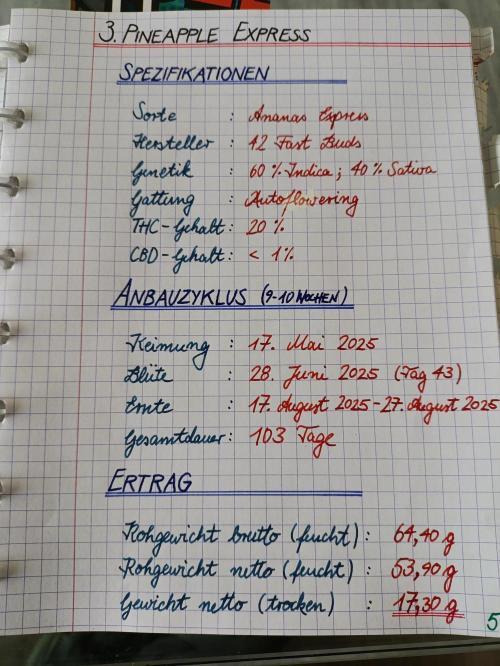 3. PINEAPPLE EXPRESS
SPEZIFIKATIONEN
Sorte : Ananas Express
Hersteller : 42 Fast Buds
Genetik : 60 % Indica ; 40 % Sativa
Gattung : Autoflowering
THC-Gehalt : 20 %
CBD-Gehalt : < 1 %
ANBAUZYKLUS (9-10 WOCHEN)
Keimung : 17. Mai 2025
Blüte : 28. Juni 2025 (Tag 43)
Ernte : 17. August 2025 - 27. August 2025
Gesamtdauer : 103 Tage
ERTRAG
Rohgewicht brutto (feucht) : 64,40 g
Rohgewicht netto (feucht) : 53,90 g
Gewicht netto (trocken) : 17,30 g
5